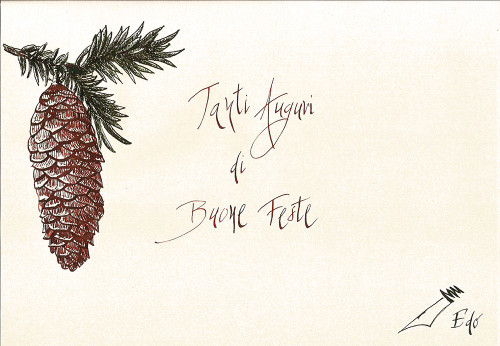 Tanti Auguri
di
Buone Feste
Edo